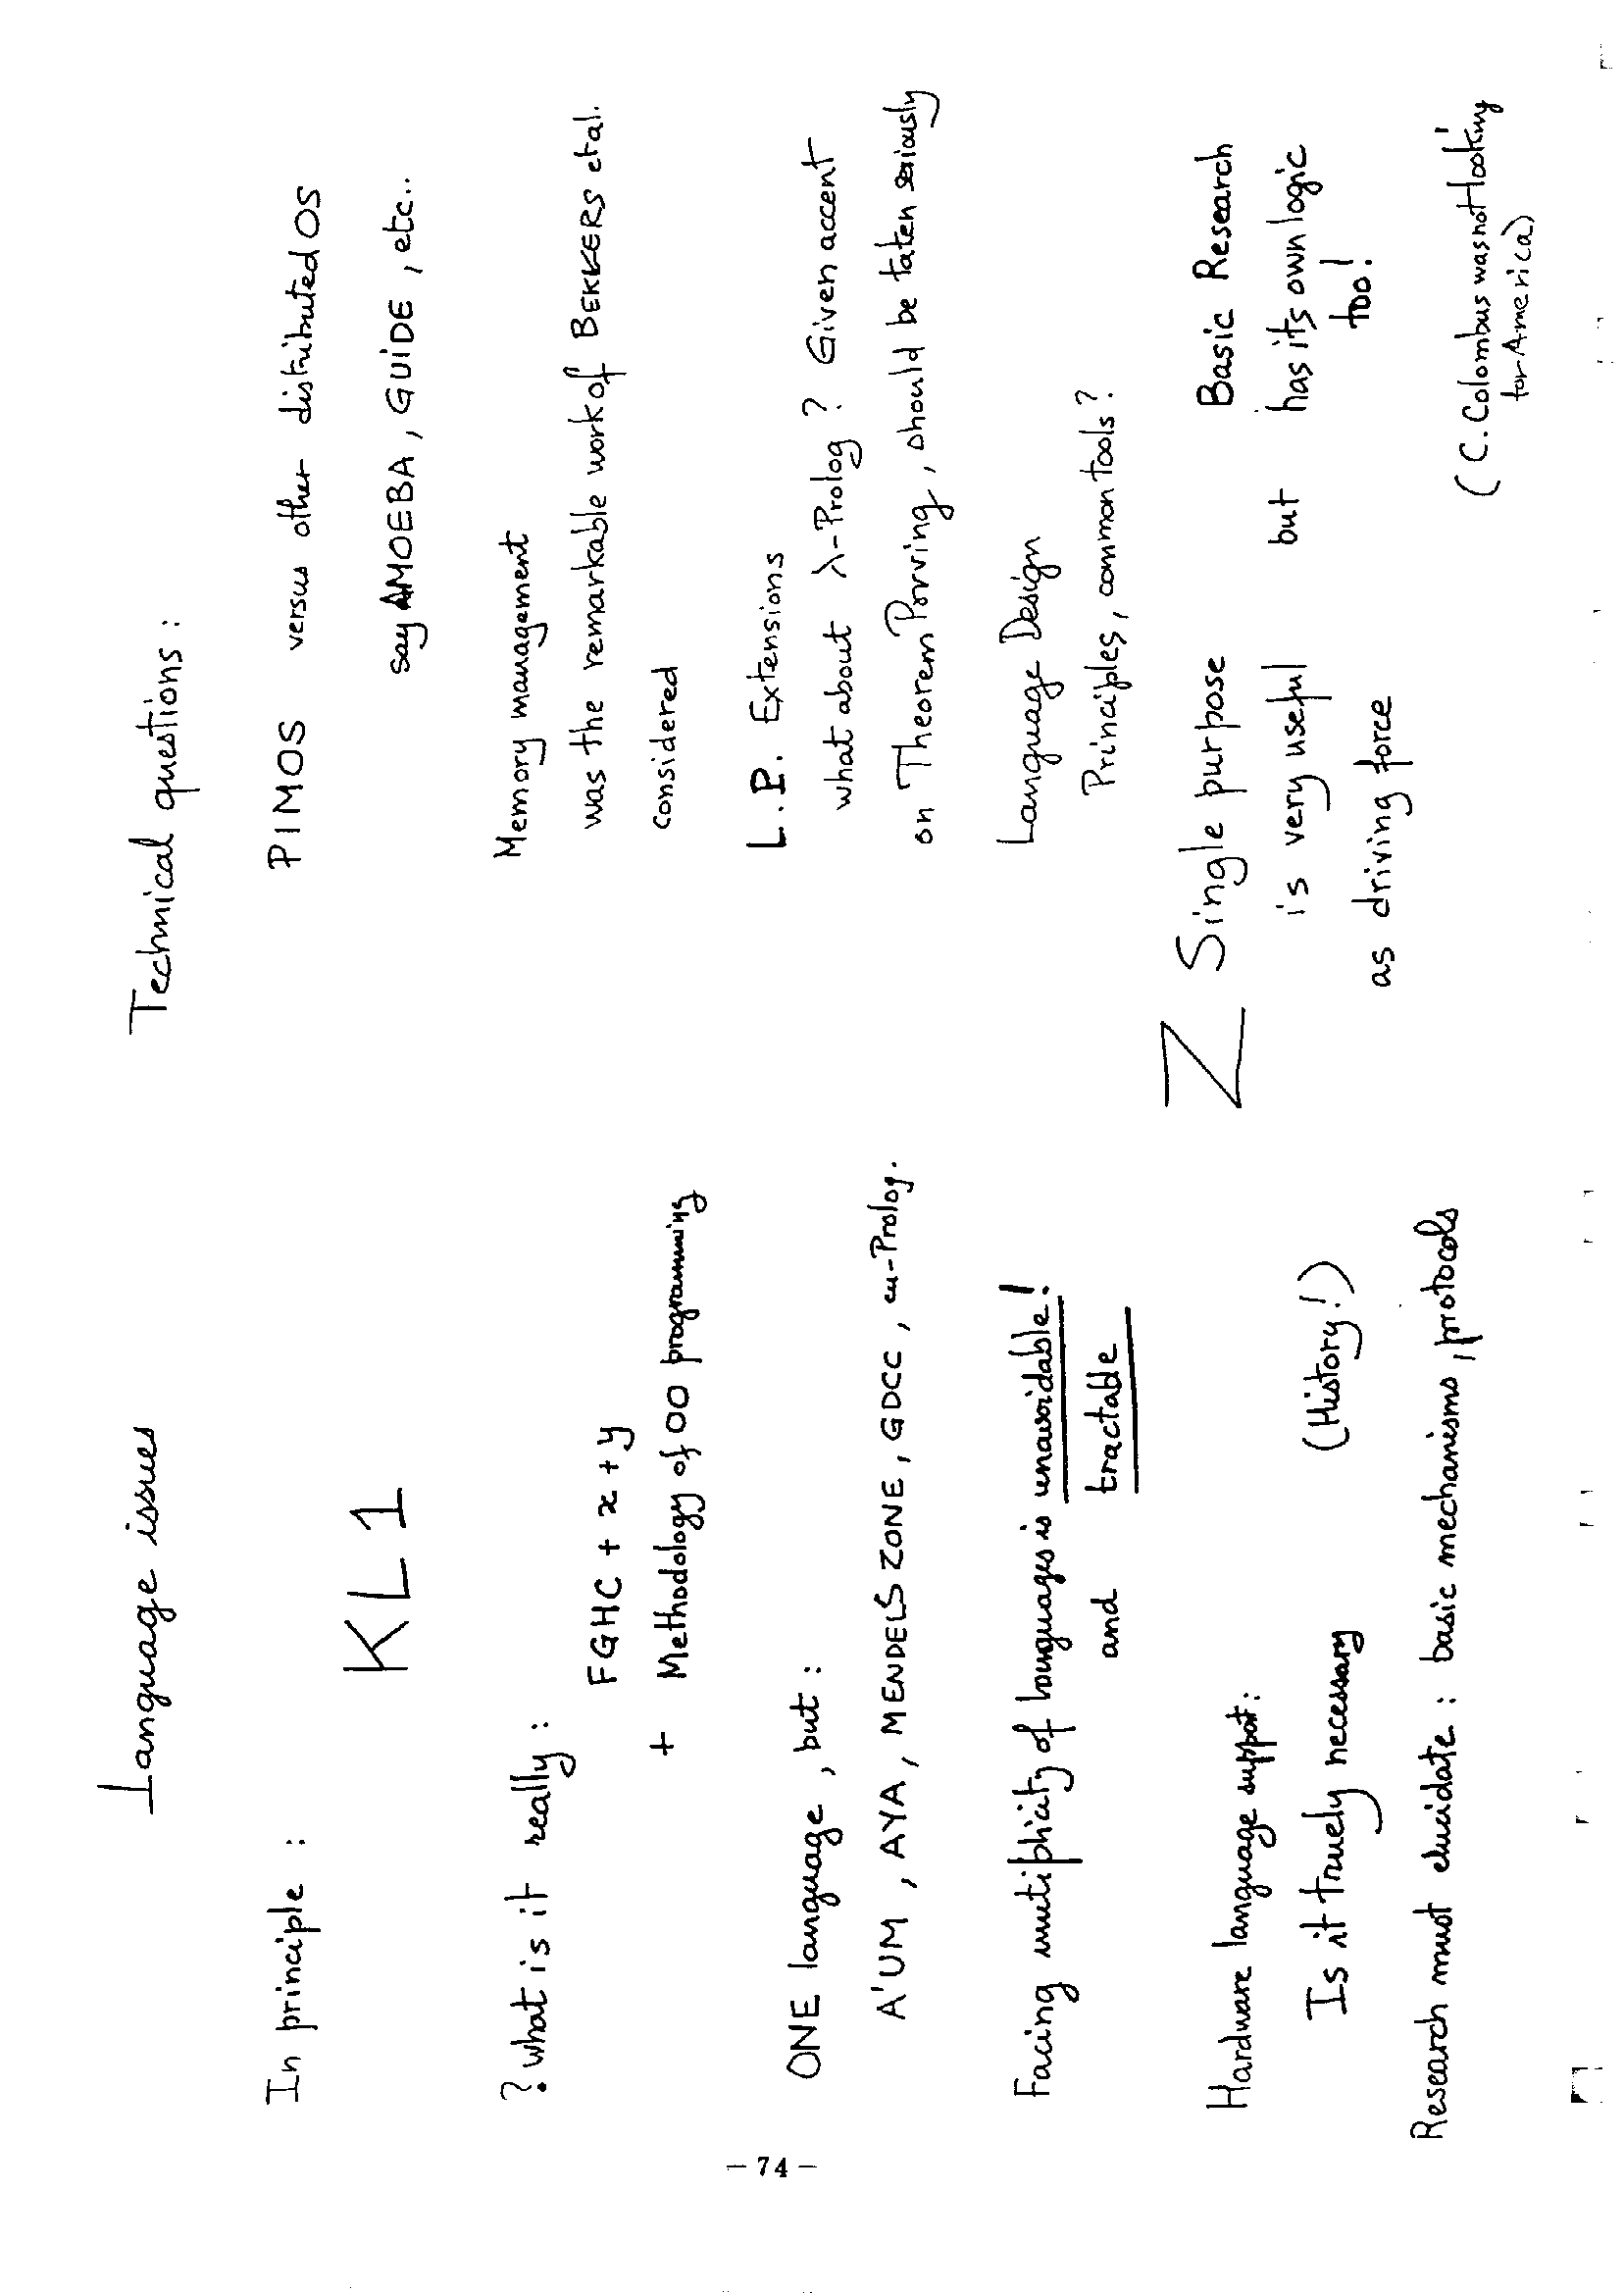 Language issues
In principle :
KL1
? what is it really :
FGHC + x + y
+ Methodology of OO programming
ONE language , but :
A'UM , AYA , MENDELS ZONE , GDCC , cu-Prolog.
Facing multiplicity of languages is unavoidable!
and tractable
Hardware language support:
Is it truely necessary (History!)
Research must elucidate : basic mechanisms, protocols
Technical questions :
PIMOS versus other distributed OS
say AMOEBA , GUIDE , etc..
Memory management
was the remarkable work of BEKKERS et al.
considered
L.P. Extensions
what about λ-Prolog ? Given accent
on Theorem Porving , should be taken seriously
Language Design
Principles, common tools ?
Z Single purpose Basic Research
is very useful but has its own logic
as driving force too!
( C. Colombus was not looking
for America)
- 74 -